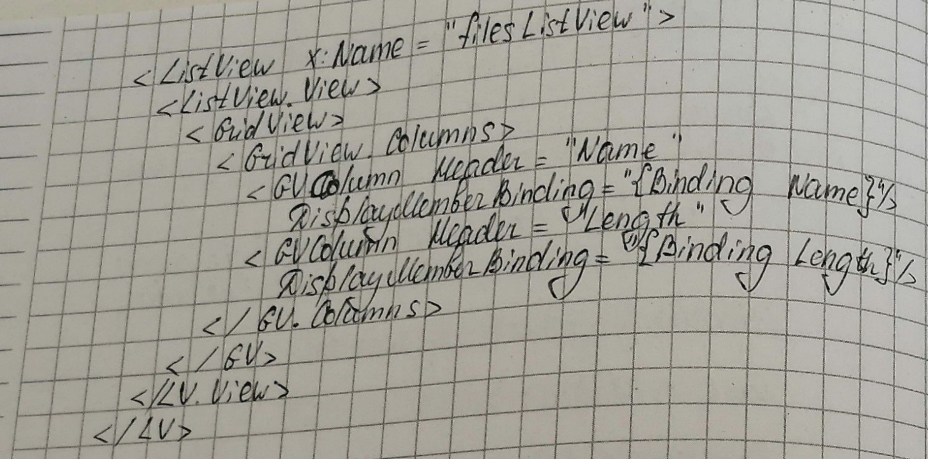 <ListView x:Name = "filesListView">
<ListView.View>
<GridView>
<GridView.Columns>
<GVColumn Header = "Name"
DisplayMemberBinding = "{Binding Name}"/>
<GVColumn Header = "Length"
DisplayMemberBinding = "{Binding Length}"/>
</GV.Columns>
</GV>
</LV.View>
</LV>